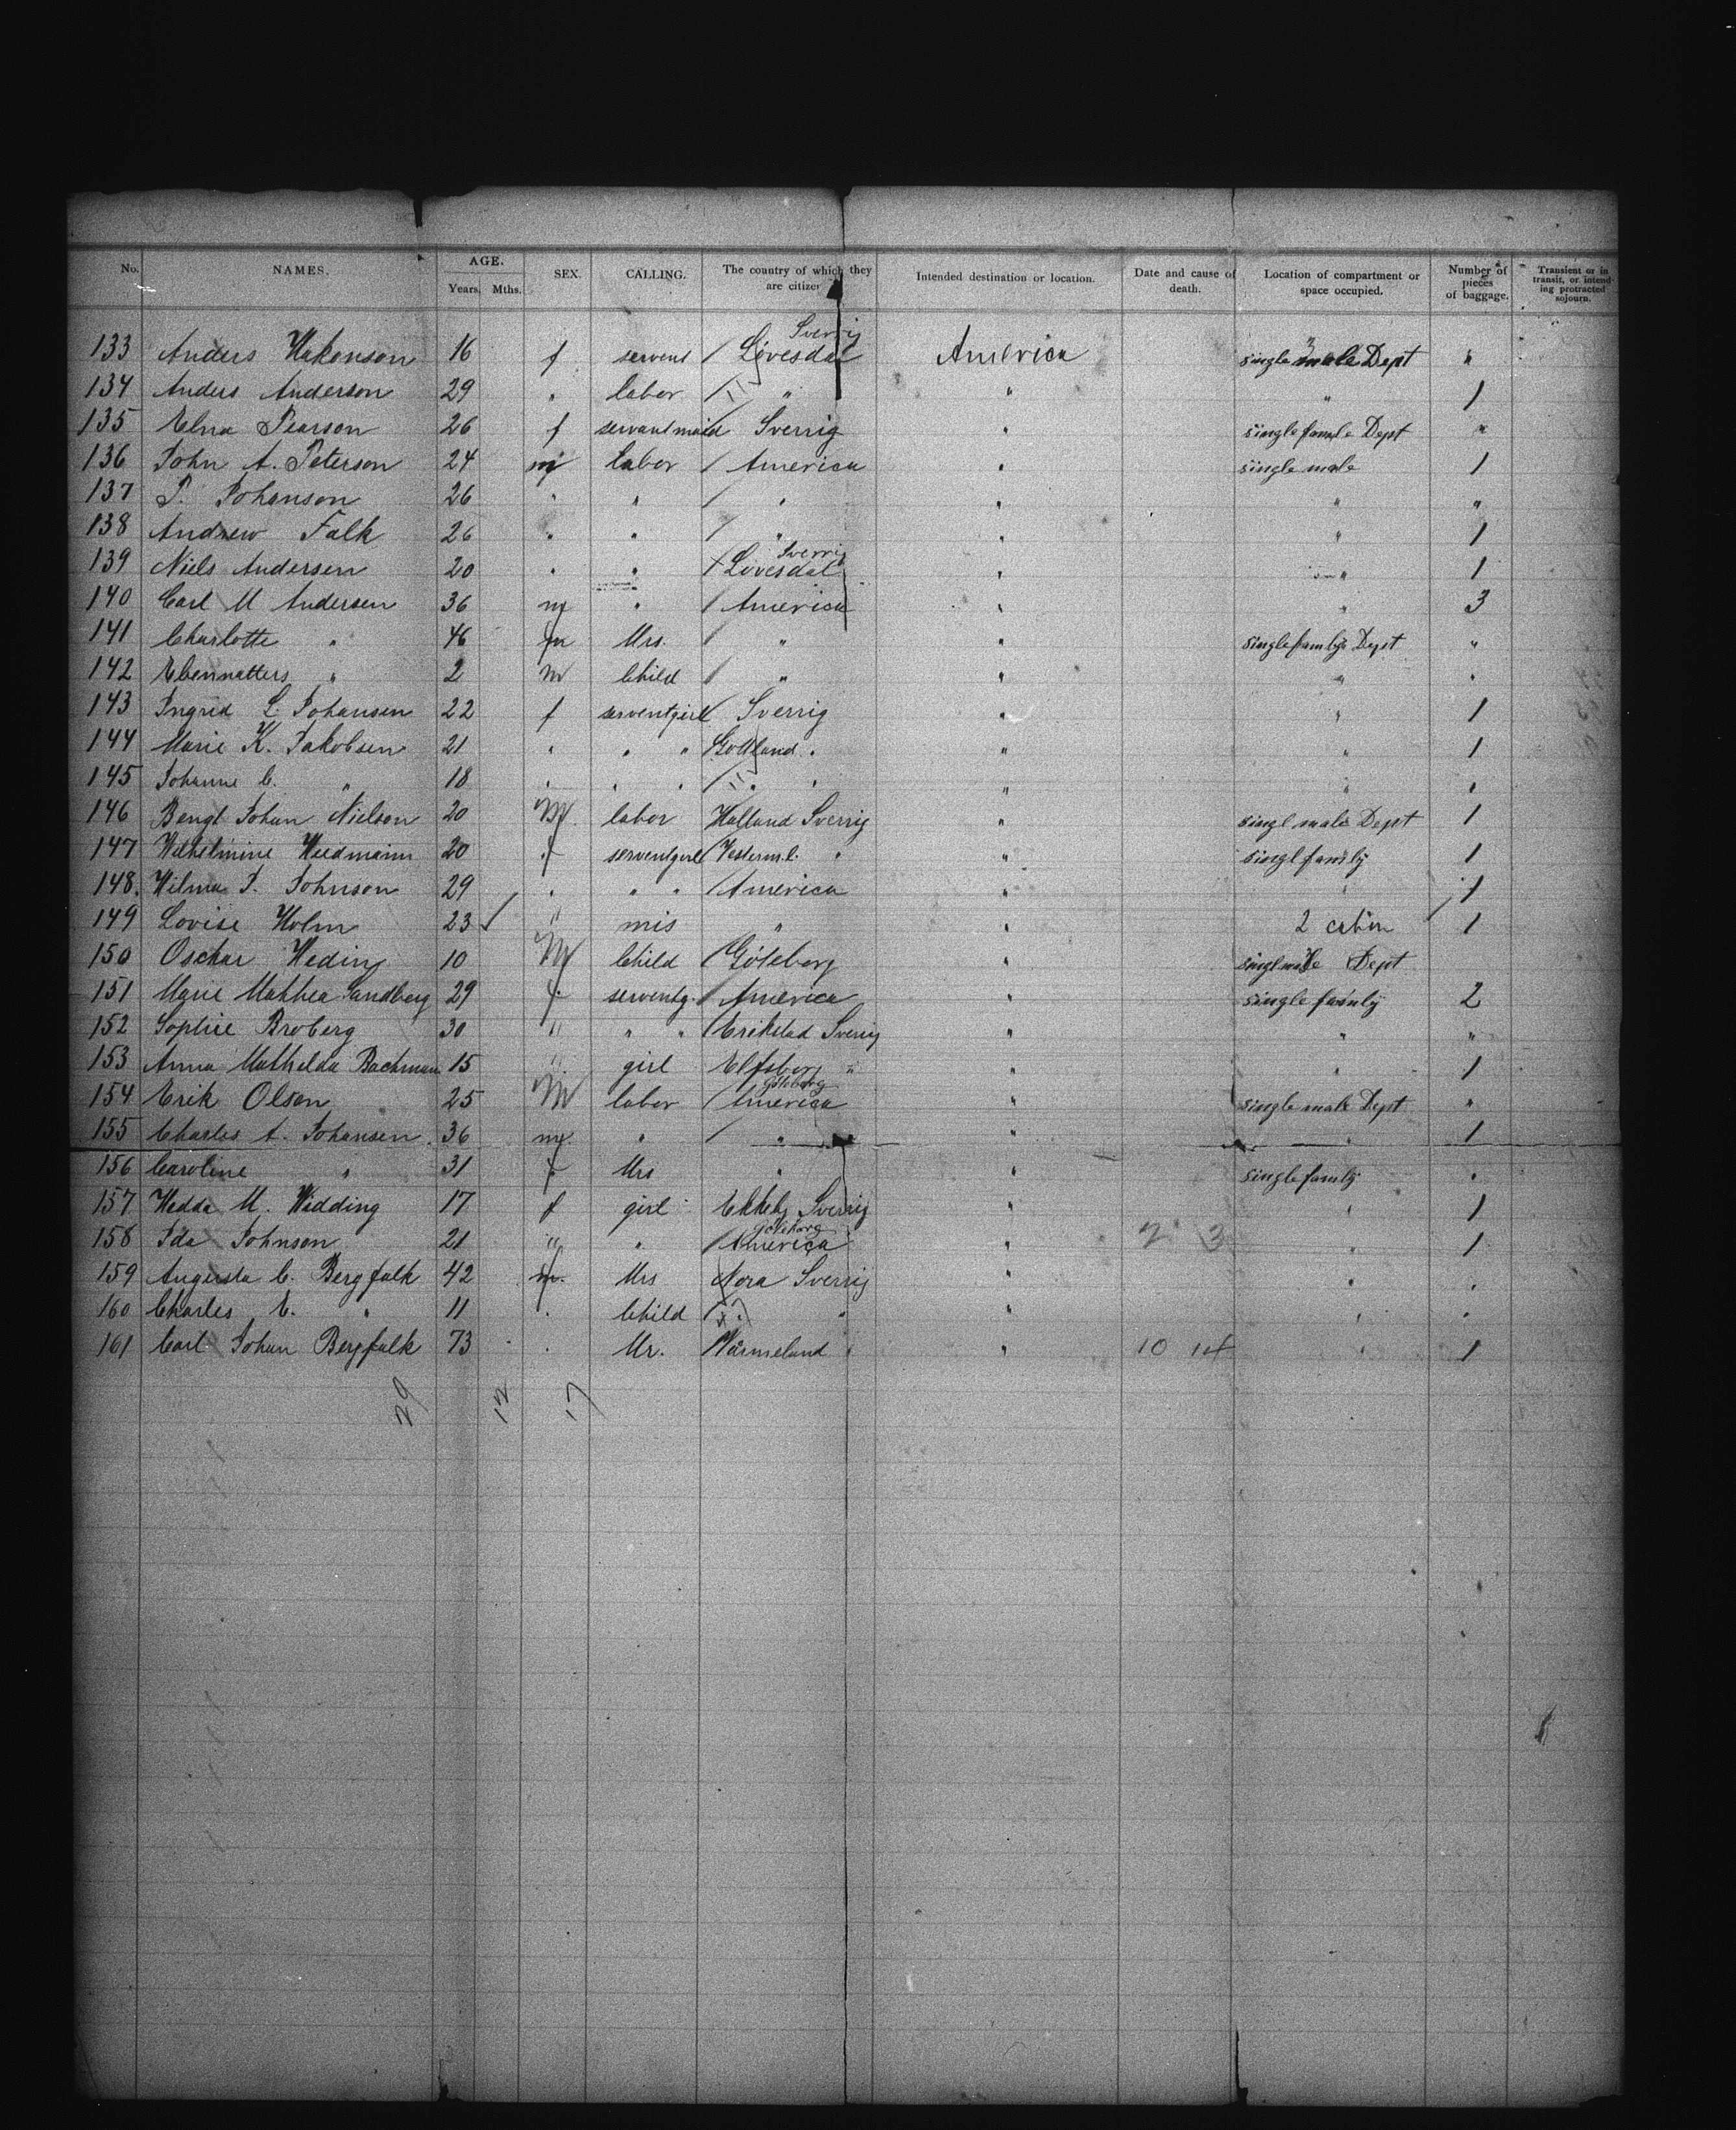 No. NAMES. AGE. Years. Mths. SEX. CALLING. The country of which they are citizen Intended destination or location. Date and cause of death. Location of compartment or space occupied. Number of pieces of baggage. Transient or in transit, or intending protracted sojourn.
133 Anders Hakonson 16 f servent / Lövesdal Sverrig America single male Dept "
134 Anders Anderson 29 " labor / " " " 1
135 Elna Pearson 26 f servantmaid Sverrig " single female Dept "
136 John A. Peterson 24 m labor / America " single male 1
137 P. Johanson 26 " " / " " " "
138 Andrew Falk 26 " " / " " " 1
139 Niels Andersen 20 " " / Lövesdal Sverrig " " 1
140 Carl M Andersen 36 m " / America " " 3
141 Charlotte " 46 Mrs. / " " single family Dept "
142 " 2 m Child / " " " "
143 Ingrid L. Johansen 22 f serventgirl / Sverrig " " 1
144 Marie K. Jakobsen 21 " " " Gottland " " " 1
145 Johanne C. " 18 " " " / " " " " "
146 Bengt Johan Nielson 20 M labor Halland Sverrig " singl male Dept 1
147 Wilhelmine Weedmann 20 f serventgirl / Vesterm.l. " " singl family 1
148. Wilma J. Johnson 29 " " " / America " " 1
149 Lovise Holm 23 " mis " " 2 cabin 1
150 Oschar Weding 10 M Child / Göteborg " singl male Dept
151 Marie Mathea Sandberg 29 f serventg. / America " single family 2
152 Sophie Broberg 30 " " " / Erikstad Sverrig " " "
153 Anna Mathelda Bachman 15 " girl Elfsborg " " " 1
154 Erik Olson 25 M labor / America Göteborg " single male Dept "
155 Charles A. Johansen 36 m " / " " " 1
156 Caroline " 31 f Mrs " " single family "
157 Hedda M. Widding 17 f girl Sverrig " " 1
158 Ida Johnson 21 " " / America Göteborg " 2 3 " 1
159 Augusta C. Bergfalk 42 Mrs Nora Sverrig " " "
160 Charles E. " 11 " Child / " " " " "
161 Carl Johan Bergfalk 73 " Mr. Wärmeland " " 10 14 " 1
29 12 17